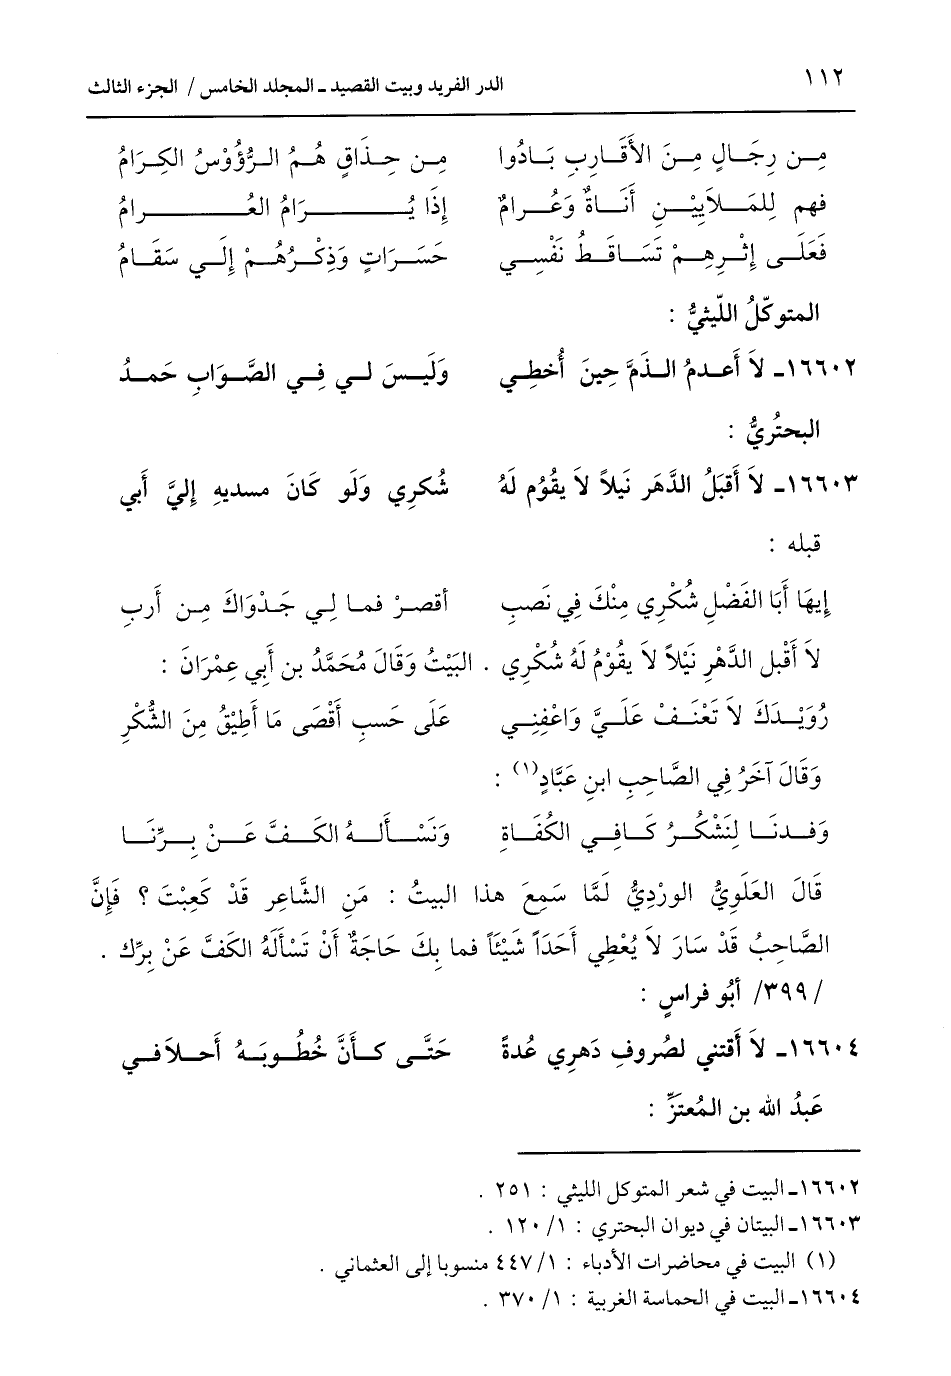 ١١٢ الدر الفريد وبيت القصيد ـ المجلد الخامس / الجزء الثالث
مِن رِجَالٍ مِنَ الأَقَارِبِ بَادُوا مِن حِذَاقٍ هُمُ الرُّؤُوْسُ الكِرَامُ
فهم لِلمَلَايِيْنِ أَنَاةٌ وَعُرامٌ إِذَا يُرَامُ العُرامُ
فَعَلَى إِثْرِهِمْ تَسَاقَطُ نَفْسِي حَسَرَاتٍ وَذِكْرُهُمْ إِلَي سَقَامُ
المتوكّلُ اللّيثيُّ :
١٦٦٠٢ـ لاَ أَعدمُ الذَمَّ حِينَ أُخطِي وَلَيسَ لي فِي الصَّوَابِ حَمدُ
البحتُريُّ :
١٦٦٠٣ـ لاَ أَقبَلُ الدَّهَر نَيلاً لاَ يقُوُم لَهُ شُكرِي وَلَو كَانَ مسديهِ إِليَّ أَبي
قبله :
إِيهَا أَبَا الفَضْلِ شُكْرِي مِنْكَ فِي نَصبِ أقصرْ فما لِي جَدْوَاكَ مِن أربِ
لاَ أَقْبل الدَّهْرِ نَيْلاً لاَ يقُوْمُ لَهُ شُكْرِي . البَيْتُ وَقَالَ مُحَمَّدُ بن أَبي عِمْرَانَ :
رُوَيْدَكَ لاَ تَعْنَفْ عَلَيَّ وَاعْفِنِي عَلَى حَسبِ أَقْصَى مَا أَطِيْقُ مِنَ الشُّكْرِ
وَقَالَ آخَرُ فِي الصَّاحِبِ ابنِ عَبَّادٍ(١) :
وَفدنَا لِنَشْكُرُ كَافِي الكُفَاةِ وَنَسْأَلهُ الكَفَّ عَنْ بِرِّنَا
قَالَ العَلَوِيُّ الورْدِيُّ لَمَّا سَمِعَ هذا البيتُ : مَنِ الشَّاعِرِ قَدْ كَعِبْتَ ؟ فَإِنَّ
الصَّاحِبُ قَدْ سَارَ لاَ يُعْطِي أَحَداً شَيْئَاً فما بِكَ حَاجَةٌ أَنْ تَسْأَلَهُ الكَفَّ عَنْ بِرِّك .
/٣٩٩/ أبُو فراسٍ :
١٦٦٠٤ـ لاَ أَقتني لصُروفِ دَهرِي عُدةً حَتَّى كأَنَّ خُطُوبَهُ أَحلاَفي
عَبدُ الله بن المُعتَزِّ :
١٦٦٠٢ـ البيت في شعر المتوكل الليثي : ٢٥١ .
١٦٦٠٣ـ البيتان في ديوان البحتري : ١/ ١٢٠ .
(١) البيت في محاضرات الأدباء : ١/ ٤٤٧ منسوبا إلى العثماني .
١٦٦٠٤ـ البيت في الحماسة الغربية : ١/ ٣٧٠ .